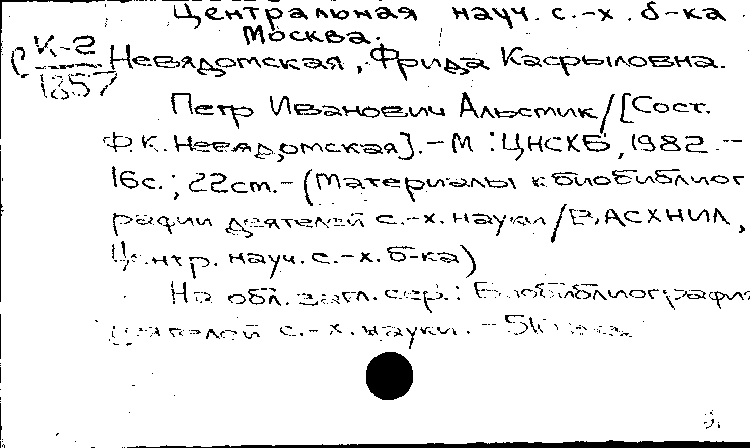 Центральная науч. с.-х. б-ка
Москва.
К-2
1857
Невядомская, Фрида Касрыловна.
Петр Иванович Альсмик/[Сост.
Ф.К. Невядомская].-М : ЦНСХБ, 1982.-
16с.; 22см.-(Материалы к биобиблиог
рафии деятелей с.-х. науки/ВАСХНИЛ,
Центр. науч. с.-х. б-ка)
На обл. загл. сер.: Биобиблиография
деятелей с.-х. науки. -